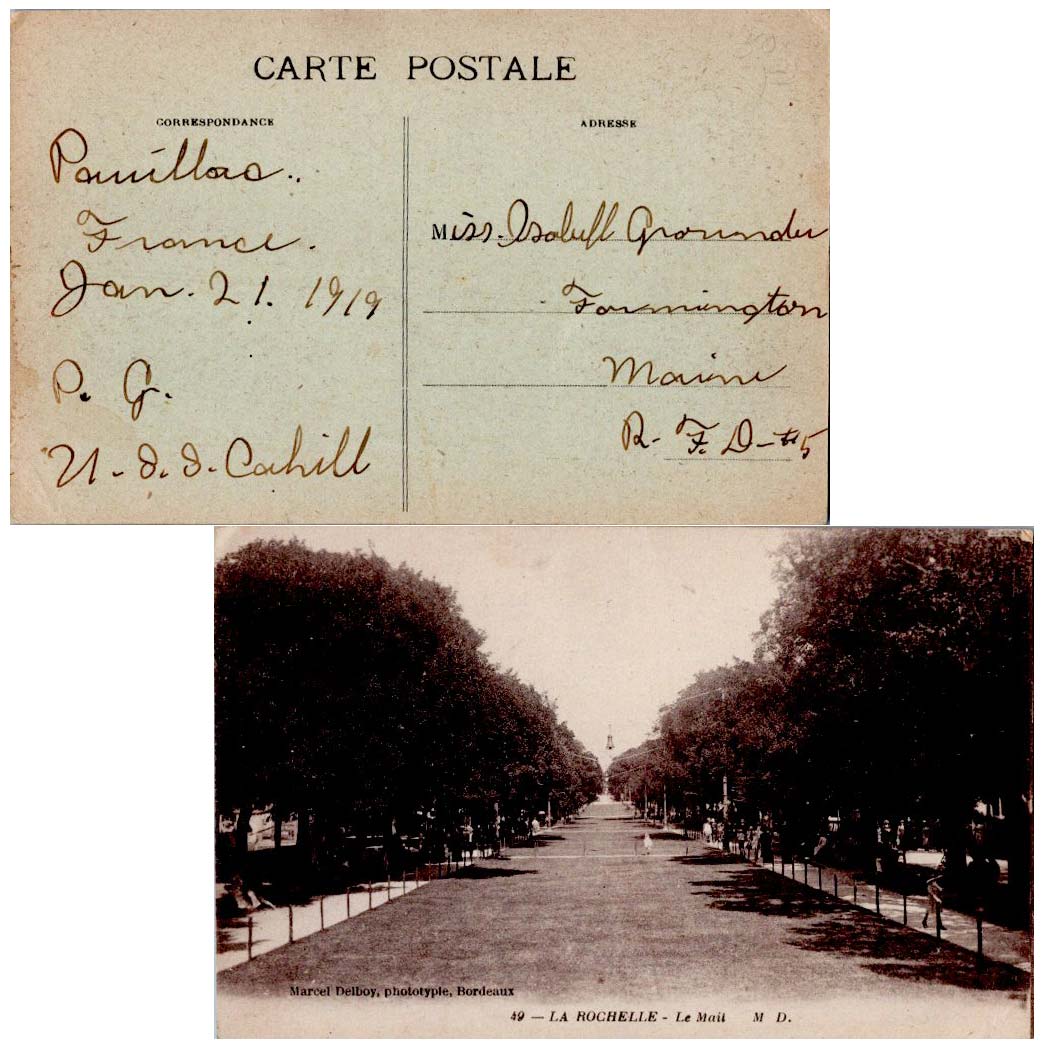 CARTE POSTALE
CORRESPONDANCE
Pauillac.
France.
Jan. 21. 1919
P. G.
U. S. S. Cahill
ADRESSE
Miss. Isabell Grounder
Farmington
Maine
R. F. D-#5
Marcel Delboy, phototypie, Bordeaux
49 — LA ROCHELLE - Le Mail M D.